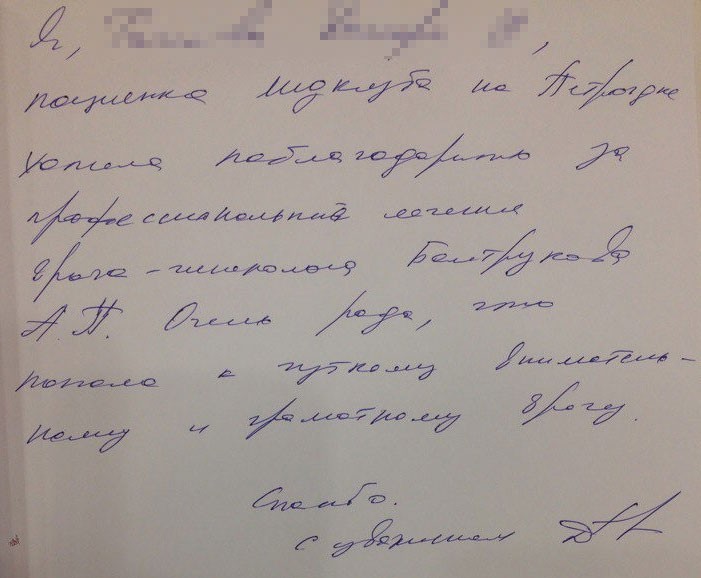 Я, ,
пациентка Медклуба на Петроградке
хотела поблагодарить за
профессиональный лечение
врача-гинеколога Балтрукова
А.П. Очень рада, что
попала к чуткому вниматель-
ному и грамотному врачу.
Спасибо.
С уважением